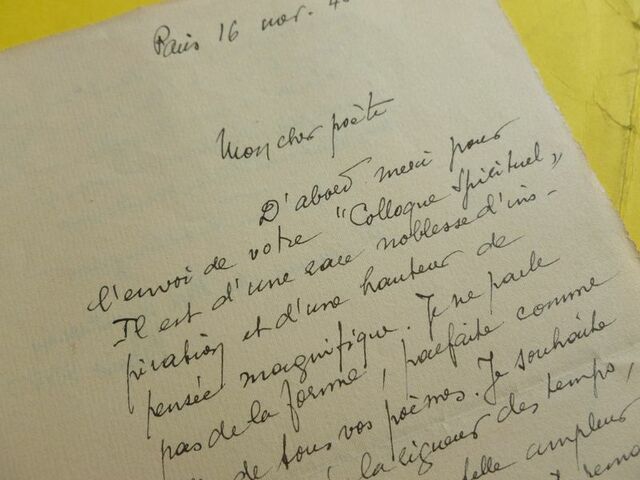 Paris 16 nov. 4
Mon cher poète
D'abord merci pour
l'envoi de votre "Colloque Spirituel"
Il est d'une rare noblesse d'ins-
piration et d'une hauteur de
pensée magnifique. Je ne parle
pas de la forme, parfaite comme
de tous vos poèmes. Je souhaite
à la rigueur des temps,
telle ampleur